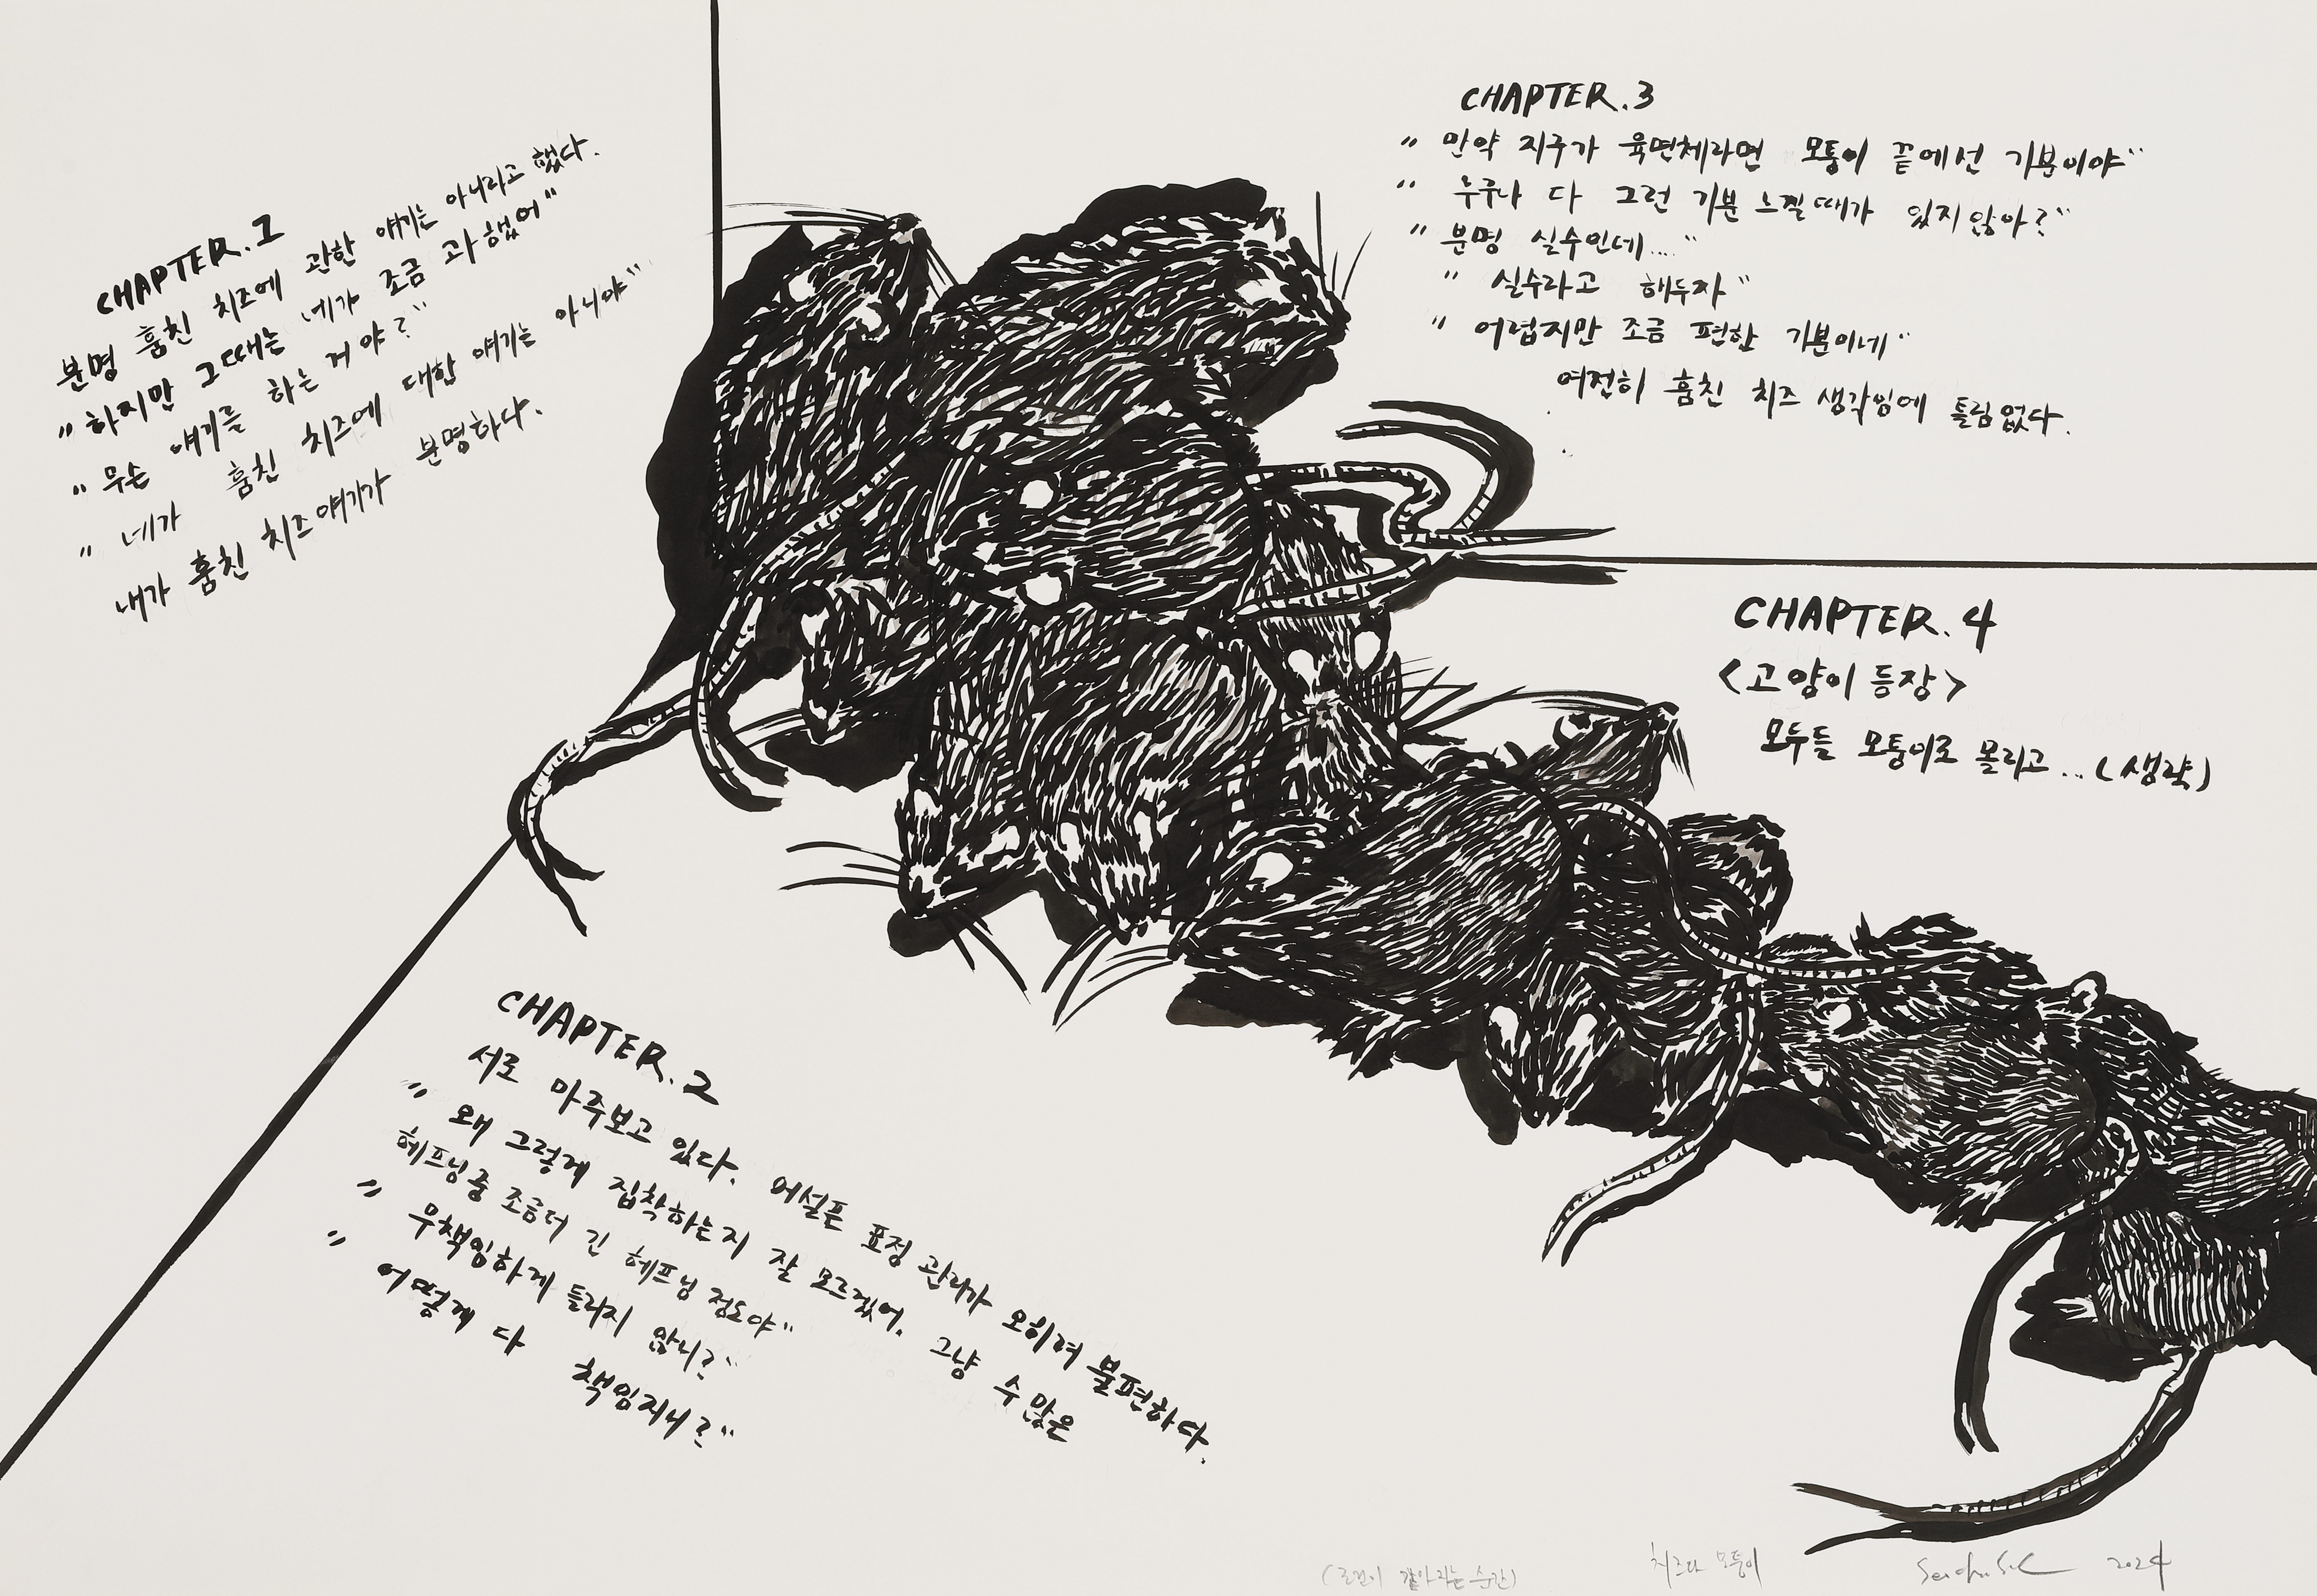 CHAPTER.1
분명 훔친 치즈에 관한 얘기는 아니라고 했다.
"하지만 그때는 네가 조금 과했어"
"무슨 얘기를 하는 거야?"
"네가 훔친 치즈에 대한 얘기는 아니야"
내가 훔친 치즈얘기가 분명하다.
CHAPTER.2
서로 마주보고 있다. 어설픈 표정 관리가 오히려 불편하다.
"왜 그렇게 집착하는지 잘 모르겠어. 그냥 수많은
헤프닝중 조금더 긴 헤프닝 정도야"
"무책임하게 들리지 않니?"
"어떻게 다 책임지니?"
CHAPTER.3
"만약 지구가 육면체라면 모퉁이 끝에선 기분이야"
"누구나 다 그런 기분 느낄때가 있지않아?"
"분명 실수인데...."
"실수라고 해두자"
"어렵지만 조금 편한 기분이네"
여전히 훔친 치즈 생각임에 틀림없다.
CHAPTER.4
<고양이 등장>
모두들 모퉁이로 몰리고...(생략)
순간)
치즈와 모퉁이
2024